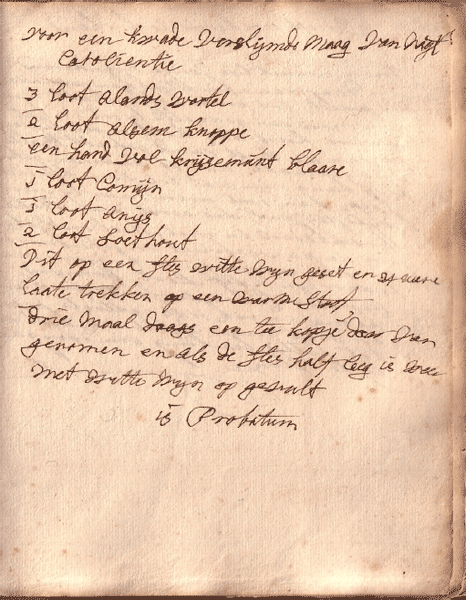 voor een kwade verslijmde maag van
3 loot alands wortel
2 loot alsem knoppe
een hand vol kruysemunt blaare
1 loot Comijn
1 loot anijs
2 loot soethout
Dit op een fles witte wyn geset en 24 uure
laate trekken op een warme stoof
drie maal daags een tee kopje daar van
genomen en als de fles half leeg is weer
met witte wyn op gevult
is Probatum